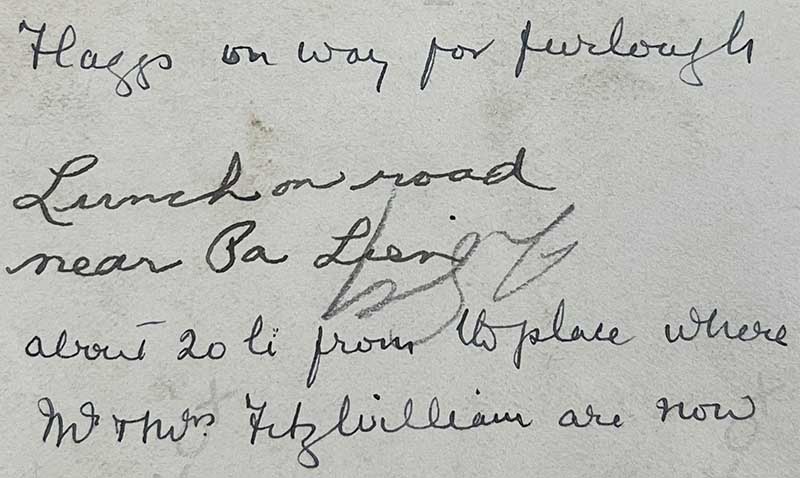 Flaggs on way for furlough
Lunch on road
near Pa Lien
about 20 li from the place where
Mr & Mrs FitzWilliam are now